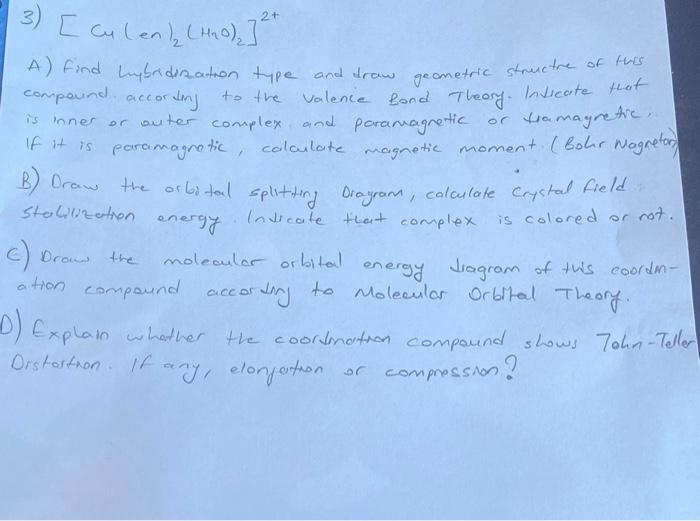 3) [Cu(en)₂(H₂O)₂]²⁺
A) Find hybridization type and draw geometric structre of this
compound according to the Valence Bond Theory. Indicate that
is inner or outer complex and paramagnetic or diamagnetic.
If it is paramagnetic, calculate magnetic moment. (Bohr Magneton)
B) Draw the orbital splitting Diagram, calculate Crystal field
stabilization energy. Indicate that complex is colored or not.
C) Draw the molecular orbital energy diagram of this coordin-
ation compound according to Molecular Orbital Theory.
D) Explain whether the coordination compound shows John-Teller
Distortion. If any, elongation or compression?